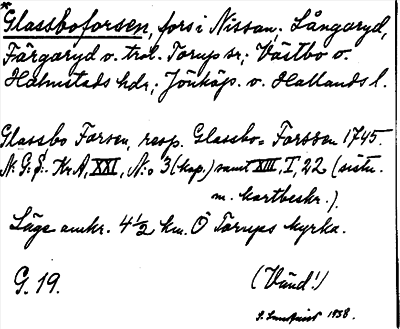 *Glassboforsen, fors i Nissan. Långaryd,
Färgaryd o. trol. Torup sr; Västbo o.
Halmstads hdr; Jönköp. o. Hallands l.
Glassbo Forsen, resp. Glassbo-Forssen 1745.
N:o 3 (kop.) samt XIII, I, 22 (sistn.
m. kartbeskr.).
Läge omkr. 4½ km. Ö Torups kyrka.
G. 19.
(Vänd!)
1938.